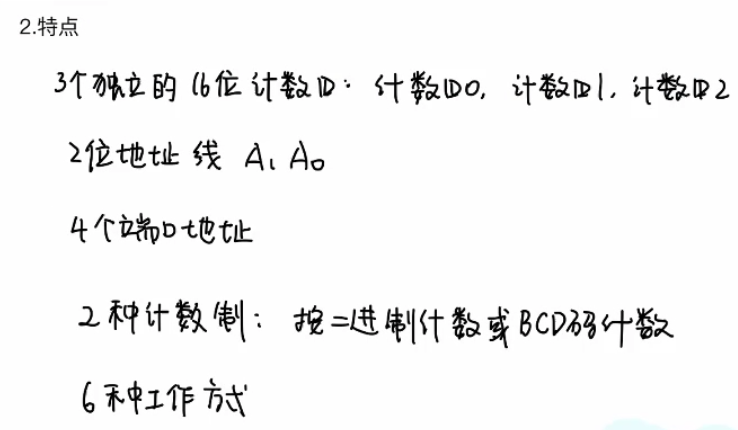 2.特点
3个独立的16位计数口：计数口0，计数口1，计数口2
2位地址线 A₁ A₀
4个端口地址
2种计数制：按二进制计数或BCD码计数
6种工作方式